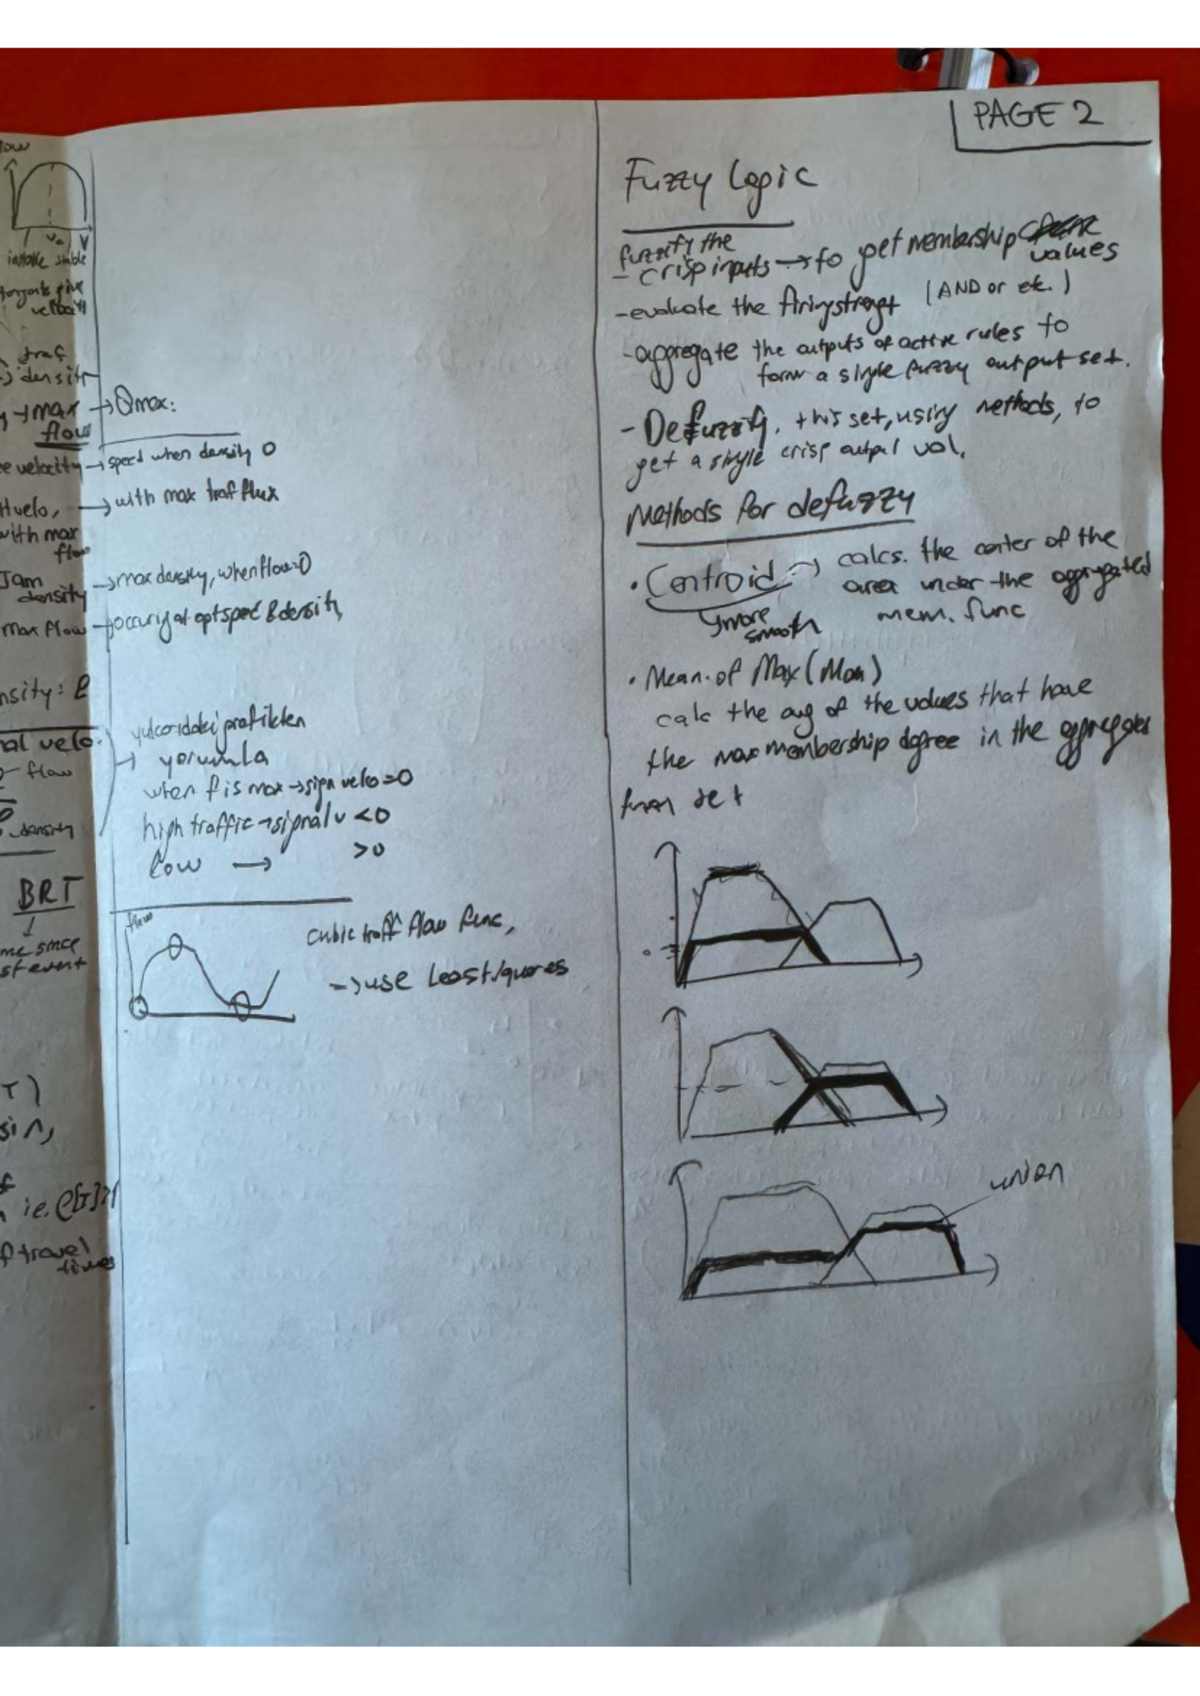 PAGE 2
flow
V
stable
velocity
density
→ max → Qmax:
flow
velocity → speed when density 0
velo, → with max traf flux
with max
flow
Jam density → max density, when flow=0
max flow → occurring at opt speed & density
yukarıdaki grafikten
yorumla
flow
when f is max → sign velo = 0
density
high traffic → signal v < 0
low → > 0
BRT
since
st event
flow
cubic traff flow func,
→ use Least squares
T)
sin,
ie.
of travel
times
Fuzzy Logic
fuzzify the
- crisp inputs → to get membership values
- evaluate the firing strengt (AND or etc.)
- aggregate the outputs of active rules to
form a single fuzzy output set.
- Defuzzify, this set, using methods, to
get a single crisp output val.
Methods for defuzzy
• Centroid → calcs. the center of the
area under the aggregated
mem. func
↳ more
smooth
• Mean of Max (Mom)
calc the avg of the values that have
the max membership degree in the aggregated
fuzzy set
union